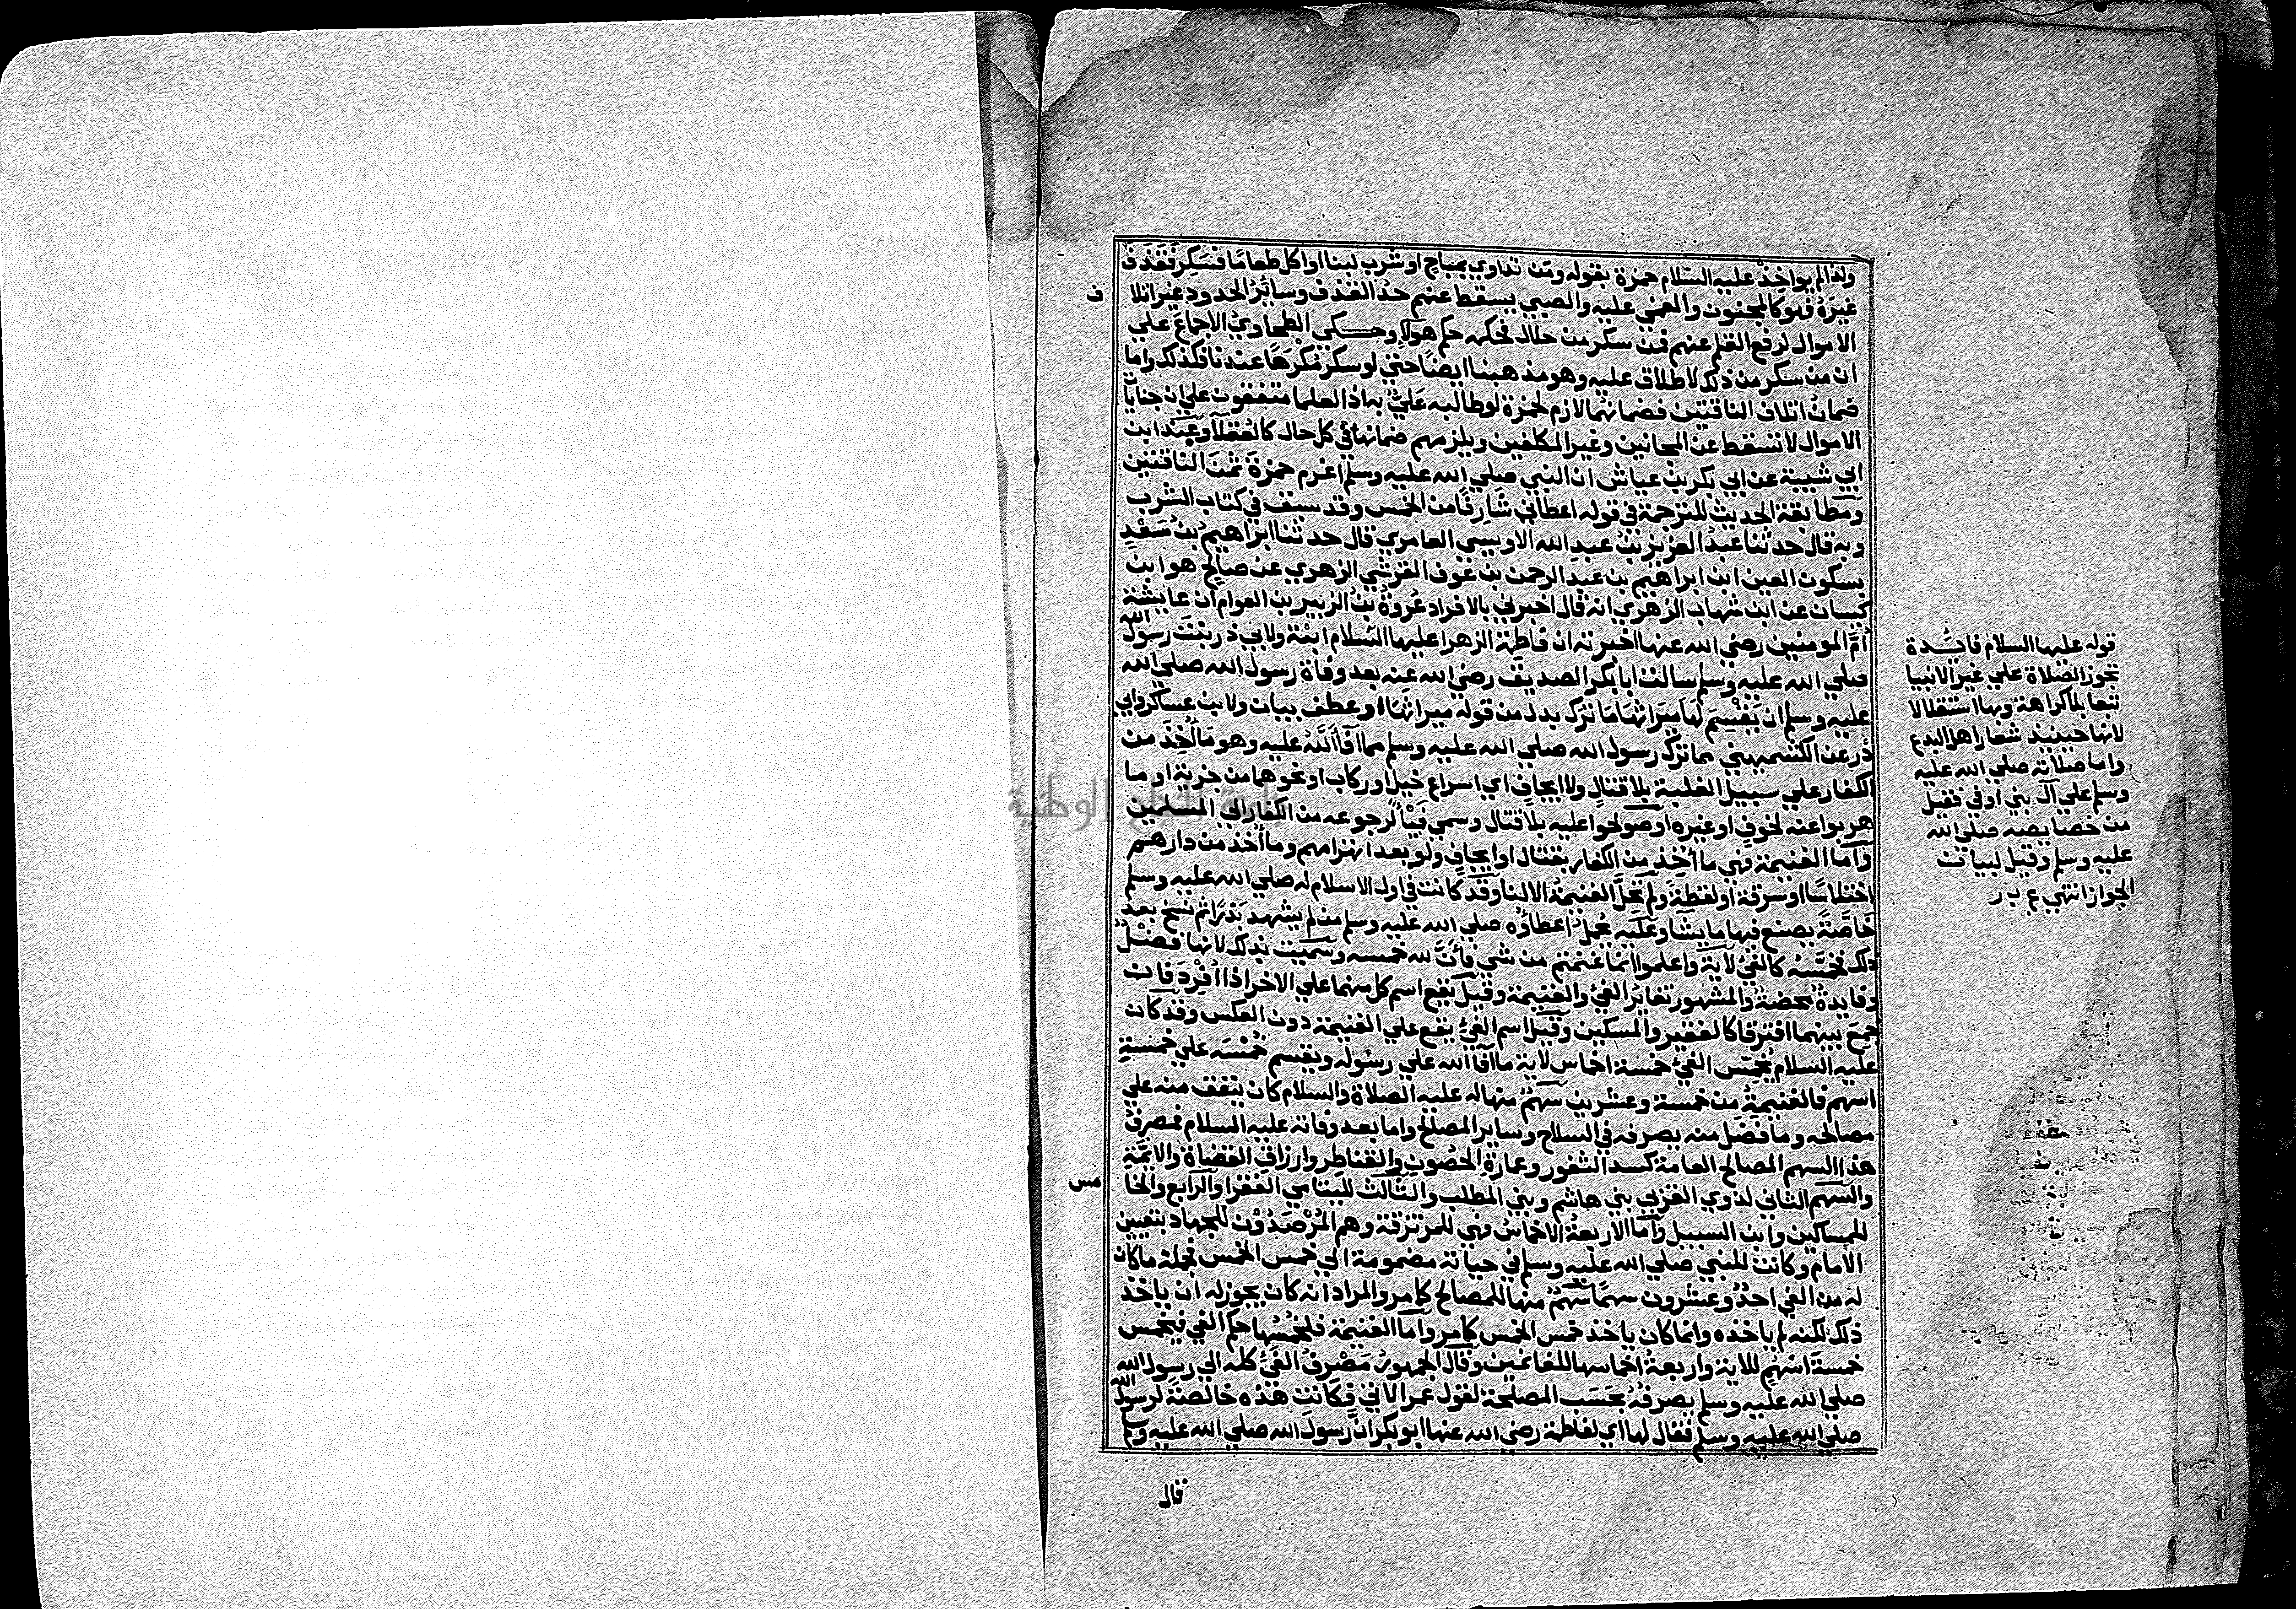 ولذا لم يواخذ عليه السلام حمزة بقوله ومن تداوي بمباح او شرب لبنا او اكل طعاما فسكر فقذف
غيره فهو كالمجنون والمغمي عليه والصبي يسقط عنهم حد القذف وساير الحدود غير اتلا
ف
الاموال لرفع القلم عنهم فمن سكر من حلال فحكمه حكم هولاء وحكي الطحاوي الاجماع علي
ان من سكر من ذلك لا طلاق عليه وهو مذهبنا ايضا حتي لو سكر مكرها عندنا فكذلك واما
ضمان اتلاف الناقتين فضمانهما لازم لحمزة لو طالبه علي به اذ العلما متفقون علي ان جنايات
الاموال لا تسقط عن المجانين وغير المكلفين ويلزمهم ضمانها في كل حال كالعقلا وعند ابن
ابي شيبة عن ابي بكر بن عياش ان النبي صلي الله عليه وسلم اغرم حمزة ثمن الناقتين
ومطابقة الحديث للترجمة في قوله اعطاني شارفا من الخمس وقد سبق في كتاب الشرب
وبه قال حدثنا عبد العزيز بن عبد الله الاويسي العامري قال حدثنا ابراهيم بن سعد
بسكون العين ابن ابراهيم بن عبد الرحمن بن عوف القرشي الزهري عن صالح هو ابن
كيسان عن ابن شهاب الزهري انه قال اخبرني بالافراد عروة بن الزبير بن العوام ان عايشة
ام المومنين رضي الله عنها اخبرته ان فاطمة الزهرا عليها السلام ابنة ولابي ذر بنت رسول الله
صلي الله عليه وسلم سالت ابا بكر الصديق رضي الله عنه بعد وفاة رسول الله صلي الله
عليه وسلم ان يقسم لها ميراثها ما ترك بدل من قوله ميراثها او عطف بيان ولابن عساكر وابي
ذر عن الكشميهني مما ترك رسول الله صلي الله عليه وسلم مما افا الله عليه وهو ما اخذ من
الكفار علي سبيل الغلبة بلا قتال ولا ايجاف اي اسراع خيل او ركاب او نحوهما من جزية او ما
هربوا عنه لخوف او غيره او صولحوا عليه بلا قتال وسمي فيئا لرجوعه من الكفار الي المسلمين
واما الغنيمة فهي ما اخذ من الكفار بقتال او ايجاف ولو بعد انهزامهم وما اخذ من دارهم
اختلاسا او سرقة او لقطة ولم تحل الغنيمة الا لنا وقد كانت في اول الاسلام له صلي الله عليه وسلم
خاصة يصنع فيها ما يشا وعليه يحمل اعطاؤه صلي الله عليه وسلم من لم يشهد بدرا ثم نسخ بعد
ذلك فخمسه كالفئ لاية واعلموا انما غنمتم من شي فان لله خمسه وسميت بذلك لانها فضل
وفايدة محضة والمشهور تغاير الفئ والغنيمة وقيل يقع اسم كل منهما علي الاخر اذا افرد فان
جمع بينهما افترقا كالفقير والمسكين وقيل اسم الفئ يقع علي الغنيمة دون العكس وقد كانت
عليه السلام يخمس الفئ خمسة اخماس لاية ما افا الله علي رسوله ويقسم خمسه علي خمسة
اسهم فالغنيمة من خمسة وعشرين سهم منها له عليه الصلاة والسلام كان ينفق منه علي
مصالحه وما فضل منه يصرفه في السلاح وساير المصالح واما بعد وفاته عليه السلام فمصرف
هذا السهم المصالح العامة كسد الثغور وعمارة الحصون والقناطر وارزاق القضاة والايمة
والسهم الثاني لذوي القربي بني هاشم وبني المطلب والثالث لليتامي الفقرا والرابع والخا
مس
للمساكين وابن السبيل واما الاربعة الاخماس فهي للمرتزقة وهم المرصدون للجهاد بتعيين
الامام وكانت للنبي صلي الله عليه وسلم في حياته مضمومة الي خمس الخمس فجملة ما كان
له من الفي احد وعشرون سهما سهم منها للمصالح كما مر والمراد انه كان يجوز له ان ياخذ
ذلك لكنه لم ياخذه وانما كان ياخذ خمس الخمس كما مر واما الغنيمة فلخمسها حكم الفي فيخمس
خمسة اسهم للاية واربعة اخماسها للغانمين وقال الجمهور مصرف الفئ كله الي رسول الله
صلي الله عليه وسلم يصرفه بحسب المصلحة لقول عمر الاتي فكانت هذه خالصة لرسول الله
صلي الله عليه وسلم فقال لها اي لفاطمة رضي الله عنها ابو بكر ان رسول الله صلي الله عليه وسلم
قال
قوله عليها السلام فايدة
تجوز الصلاة علي غير الانبيا
تبعا بلا كراهة وبها استقلالا
لانها حينيذ شعار اهل البدع
واما صلاته صلي الله عليه
وسلم علي آل بني اوفي فقيل
من خصايصه صلي الله
عليه وسلم وقيل لبيان
الجواز انتهي
جامعة النجاح الوطنية